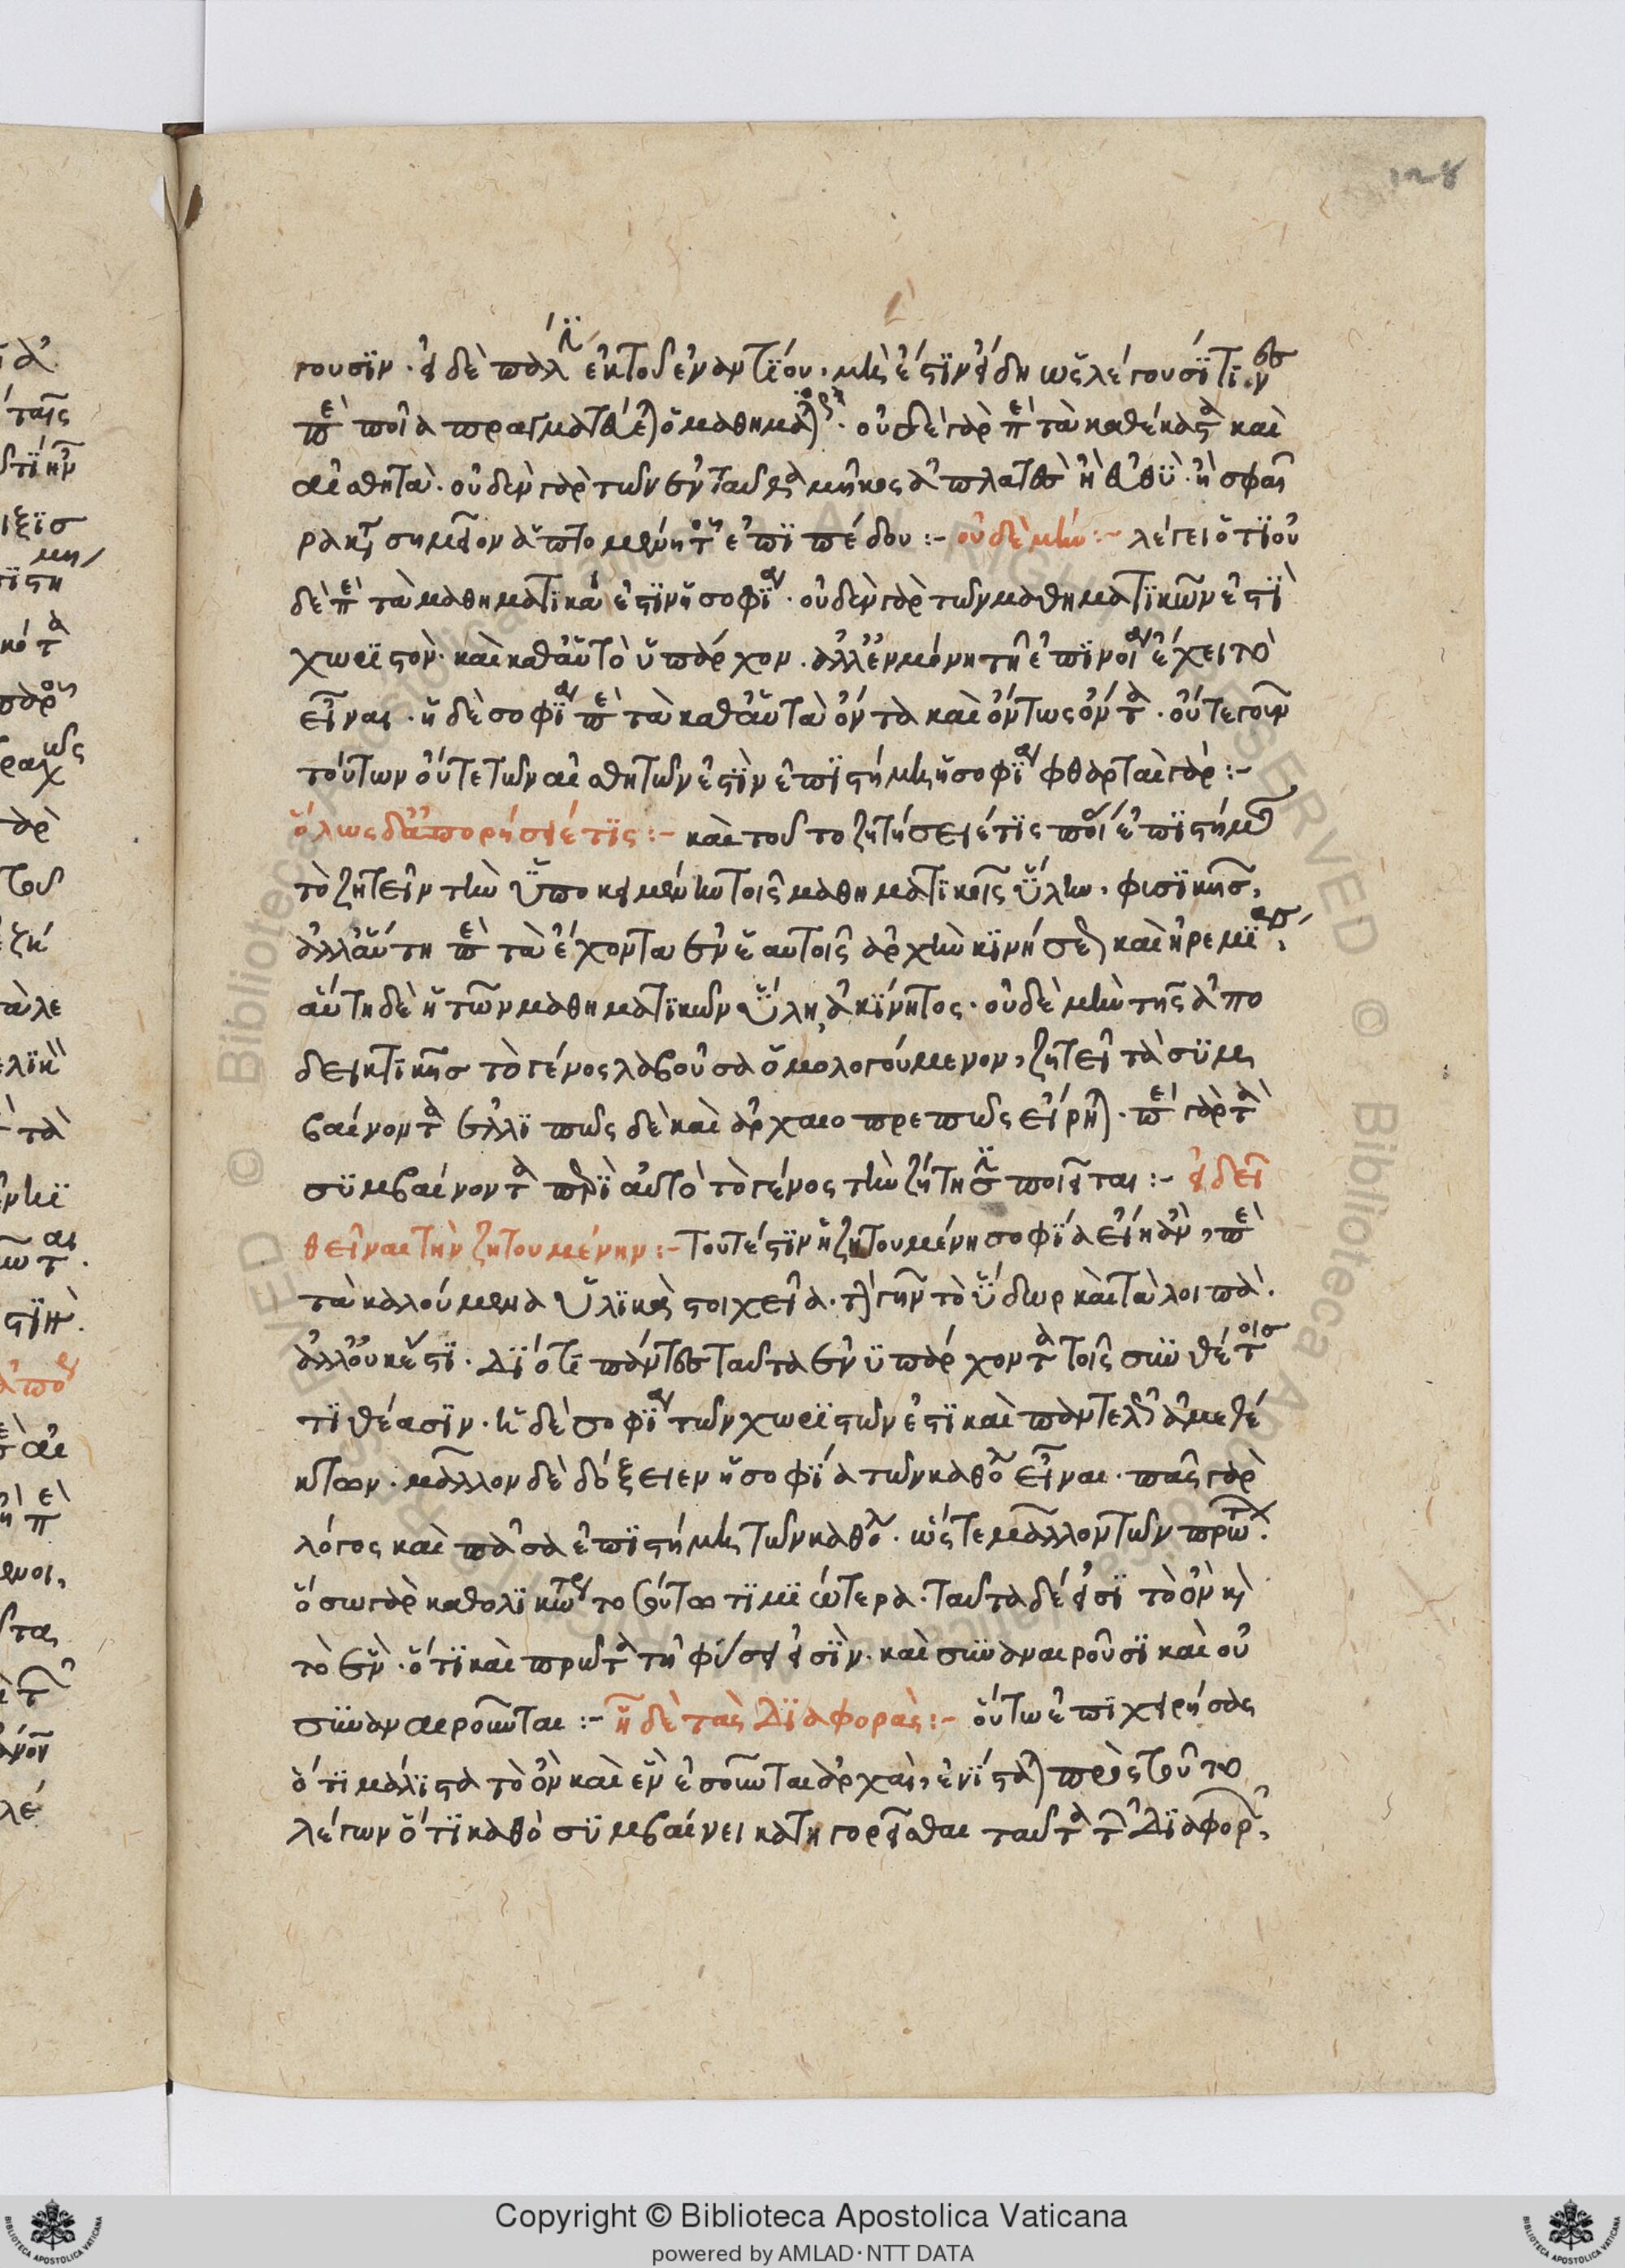 128
γουσϊν · εἰ δὲ πάλιν ἐκ τοῦ ἐναντίου · μή ἐστϊν εἴδη ὡς λέγουσί τινες
περὶ ποῖα πράγματα ἔσται ὁ μαθηματικός · οὐδὲ γὰρ περὶ τὰ καθέκαστα καὶ
αἰσθητὰ · οὐδὲν γὰρ τῶν ἐνταῦθα μῆκος ἀπλατὲς ἢ βαθὺ · ἢ σφαῖ
ρα κατὰ σημεῖον ἁπτομένη τοῦ ἐπιπέδου :- οὐδὲ μὴν :- λέγει ὅτι οὐ
δὲ περὶ τὰ μαθηματικά ἐστιν ἡ σοφία · οὐδὲν γὰρ τῶν μαθηματικῶν ἐστὶ
χωριστὸν · καὶ καθ' αὑτὸ ὑπάρχον · ἀλλ' ἐν μόνῃ τῇ ἐπινοίᾳ ἔχει τὸ
εἶναι · ἡ δὲ σοφία περὶ τὰ καθ' αὑτὰ ὄντα καὶ ὄντως ὄντα · οὔτε γοῦν
τούτων οὔτε τῶν αἰσθητῶν ἐστὶν ἐπιστήμη ἡ σοφία φθαρταὶ γάρ :-
ὅλως δ' ἀπορήσειέ τις :- καὶ τοῦτο ζητήσειέ τις ποίας ἐπιστήμης
τὸ ζητεῖν τὴν ὑποκειμένην τοῖς μαθηματικοῖς ὕλην · φισικῆς,
ἀλλ' αὕτη περὶ τὰ ἔχοντα ἐν ἑαυτοῖς ἀρχὴν κινήσεως καὶ ἠρεμίας,
αὕτη δὲ ἡ τῶν μαθηματικῶν ὕλη, ἀκίνητος · οὐδὲ μὴν τῆς ἀπο
δεικτικῆς τὸ γένος λαβοῦσα ὁμολογούμενον, ζητεῖ τὰ συμ
βαίνοντα ἐλλιπῶς δὲ καὶ ἀρχαιοπρεπῶς εἴρηται · περὶ γὰρ τὰ
συμβαίνοντα περὶ αὐτὸ τὸ γένος τὴν ζήτησιν ποιεῖται :- εἰ δεῖ
θεῖναι τὴν ζητουμένην :- τουτέστιν ἡ ζητουμένη σοφία εἴη ἂν, περὶ
τὰ καλούμενα ὑλικὰ στοιχεῖα · τὴν γῆν τὸ ὕδωρ καὶ τὰ λοιπὰ ·
ἀλλ' οὐκ ἔστι · διότι πάντες ταῦτα ἐνυπάρχοντα τοῖς συνθέτοις
τιθέασιν · ἡ δὲ σοφία τῶν χωριστῶν ἐστι καὶ παντελῶς ἀμεθέ
κτων · μᾶλλον δὲ δόξειεν ἡ σοφία τῶν καθόλου εἶναι · πᾶς γὰρ
λόγος καὶ πᾶσα ἐπιστήμη τῶν καθόλου · ὥστε μᾶλλον τῶν πρώτων ·
ὅσῳ γὰρ καθολικώτερα τοσούτω τιμιώτερα · ταῦτα δέ εἰσι τὸ ὂν καὶ
τὸ ἓν · ὅτι καὶ πρῶτα τῇ φύσει εἰσὶν · καὶ συναναιροῦσι καὶ οὐ
συναναιροῦνται :- ᾗ δὲ τὰς διαφορὰς :- οὕτω ἐπιχειρήσας
ὅτι μάλιστα τὸ ὂν καὶ ἓν ἔσονται ἀρχαὶ, ἐνίσταται πρὸς τοῦτο
λέγων ὅτι καθὸ συμβαίνει κατηγορεῖσθαι ταῦτα τῶν διαφορῶν,
Copyright © Biblioteca Apostolica Vaticana
powered by AMLAD·NTT DATA